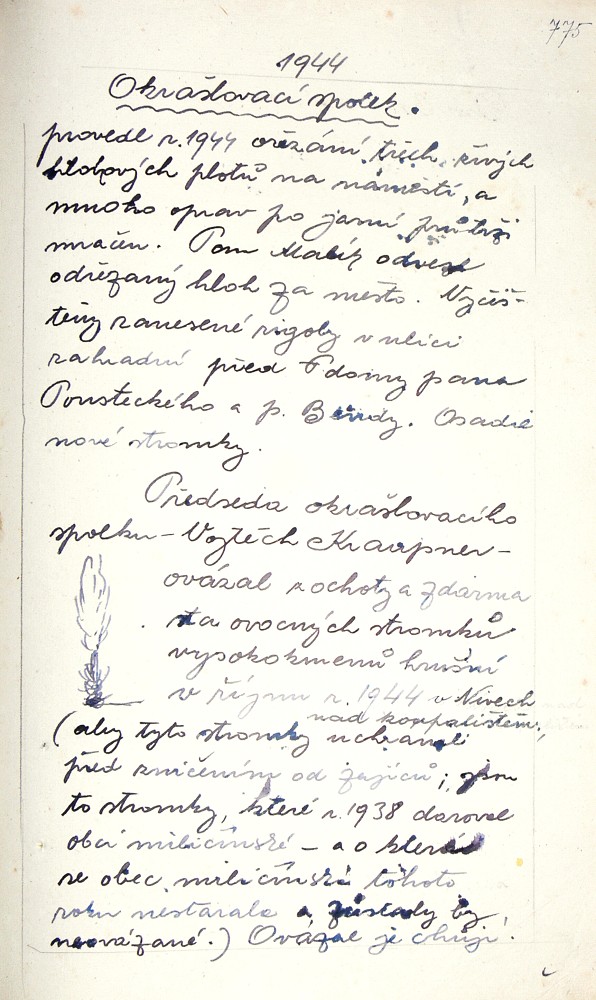 775
1944
Okrašlovací spolek.
provedl r. 1944 ořezání třech živých
hlohových plotů na náměstí, a
mnoho oprav po jarní průtrži
mračen. Pan Malík odvezl
odřezaný hloh za město. Vyčiš-
těny zanesené rigoly v ulici
zahradní před domy pana
Pousteckého a p. Bendy. Osadil
nové stromky.
Předseda okrašlovacího
spolku – Vojtěch Kraupner –
ovázal z ochoty a zdarma
sta ovocných stromků
vysokokmenů hrušní
v říjnu r. 1944 v Nivech
nad koupalištěm,
(aby tyto stromky uchránil
před zničením od zajíců; jsou
to stromky, které r. 1938 daroval
obci miličínské – a o které
se obec miličínská tohoto
roku nestarala a zůstaly by
neovázané.) Ovázal je chvojí!